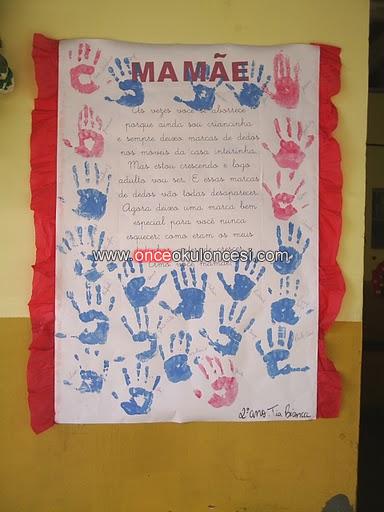 MAMÃE
Às vezes você se aborrece
porque ainda sou criancinha
e sempre deixo marcas de dedos
nos móveis da casa inteirinha.
Mas estou crescendo e logo
adulto vou ser. E essas marcas
de dedos vão todas desaparecer.
Agora deixo uma marca bem
especial para você nunca
esquecer; como eram os meus
www.onceokuloncesi.com
Amo você mamãe
2º ano Tia Bianca